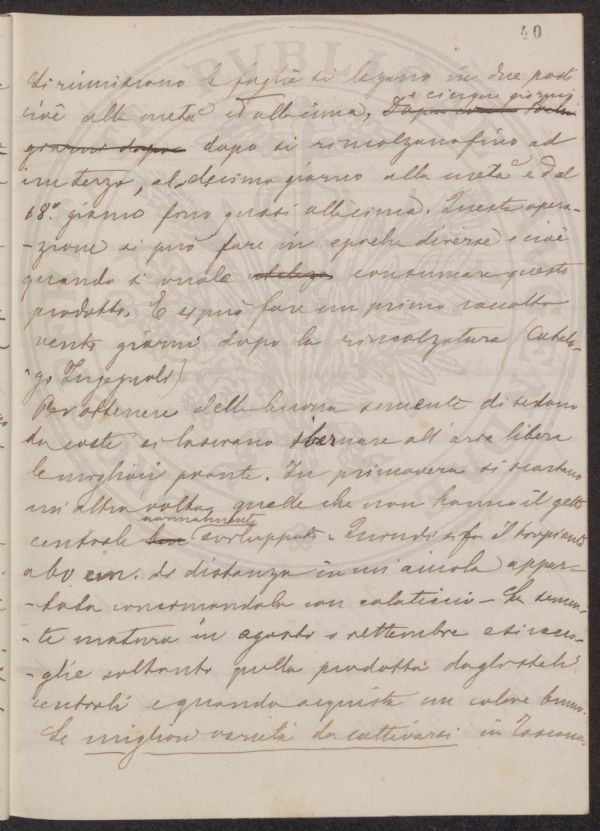 40
si riuniscono le foglie si legano in due posti
cioè alla metà ed alla cima, Dopo cinque giorni
giorni dopo dopo si rincalzano fino ad
un terzo, al decimo giorno alla metà e dal
18.º giorno fino quasi alla cima. Questa opera-
-zione si può fare in epoche diverse, cioè
quando si vuole consumare questo
prodotto. E si può fare un primo raccolto
venti giorni dopo la rincalzatura (Catalo-
go Ingegnoli)
Per ottenere della buona semente di sedano
da coste si lasciano svernare all'aria libera
le migliori piante. In primavera si scartano
un'altra volta quelle che non hanno il getto
normalmente
centrale ben sviluppato. Quindi si fa il trapianto
a 60 cm. di distanza in un'aiuola appar-
-tata concimandola con colaticcio - La semen-
-te matura in agosto o settembre e si racco-
-glie soltanto quella prodotta dagli steli
centrali e quando acquista un colore bruno.
Le migliori varietà da coltivarsi in Toscana